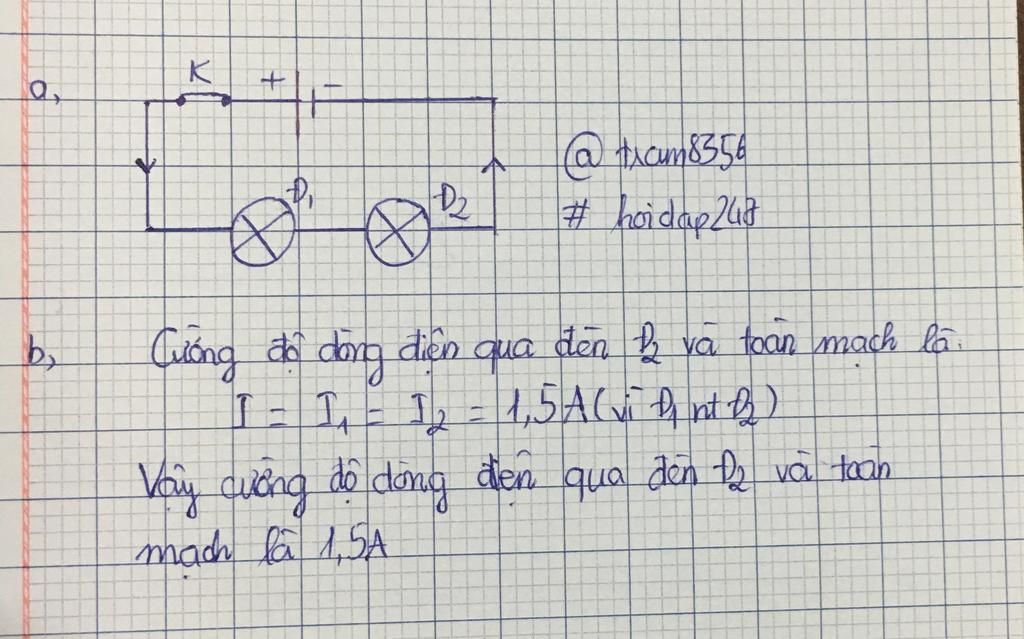 a,
K + -
Đ1 Đ2
@ tram8356
# hoidap247
b, Cường độ dòng điện qua đèn Đ2 và toàn mạch là:
I = I1 = I2 = 1,5A (vì Đ1 nt Đ2)
Vậy cường độ dòng điện qua đèn Đ2 và toàn
mạch là 1,5A